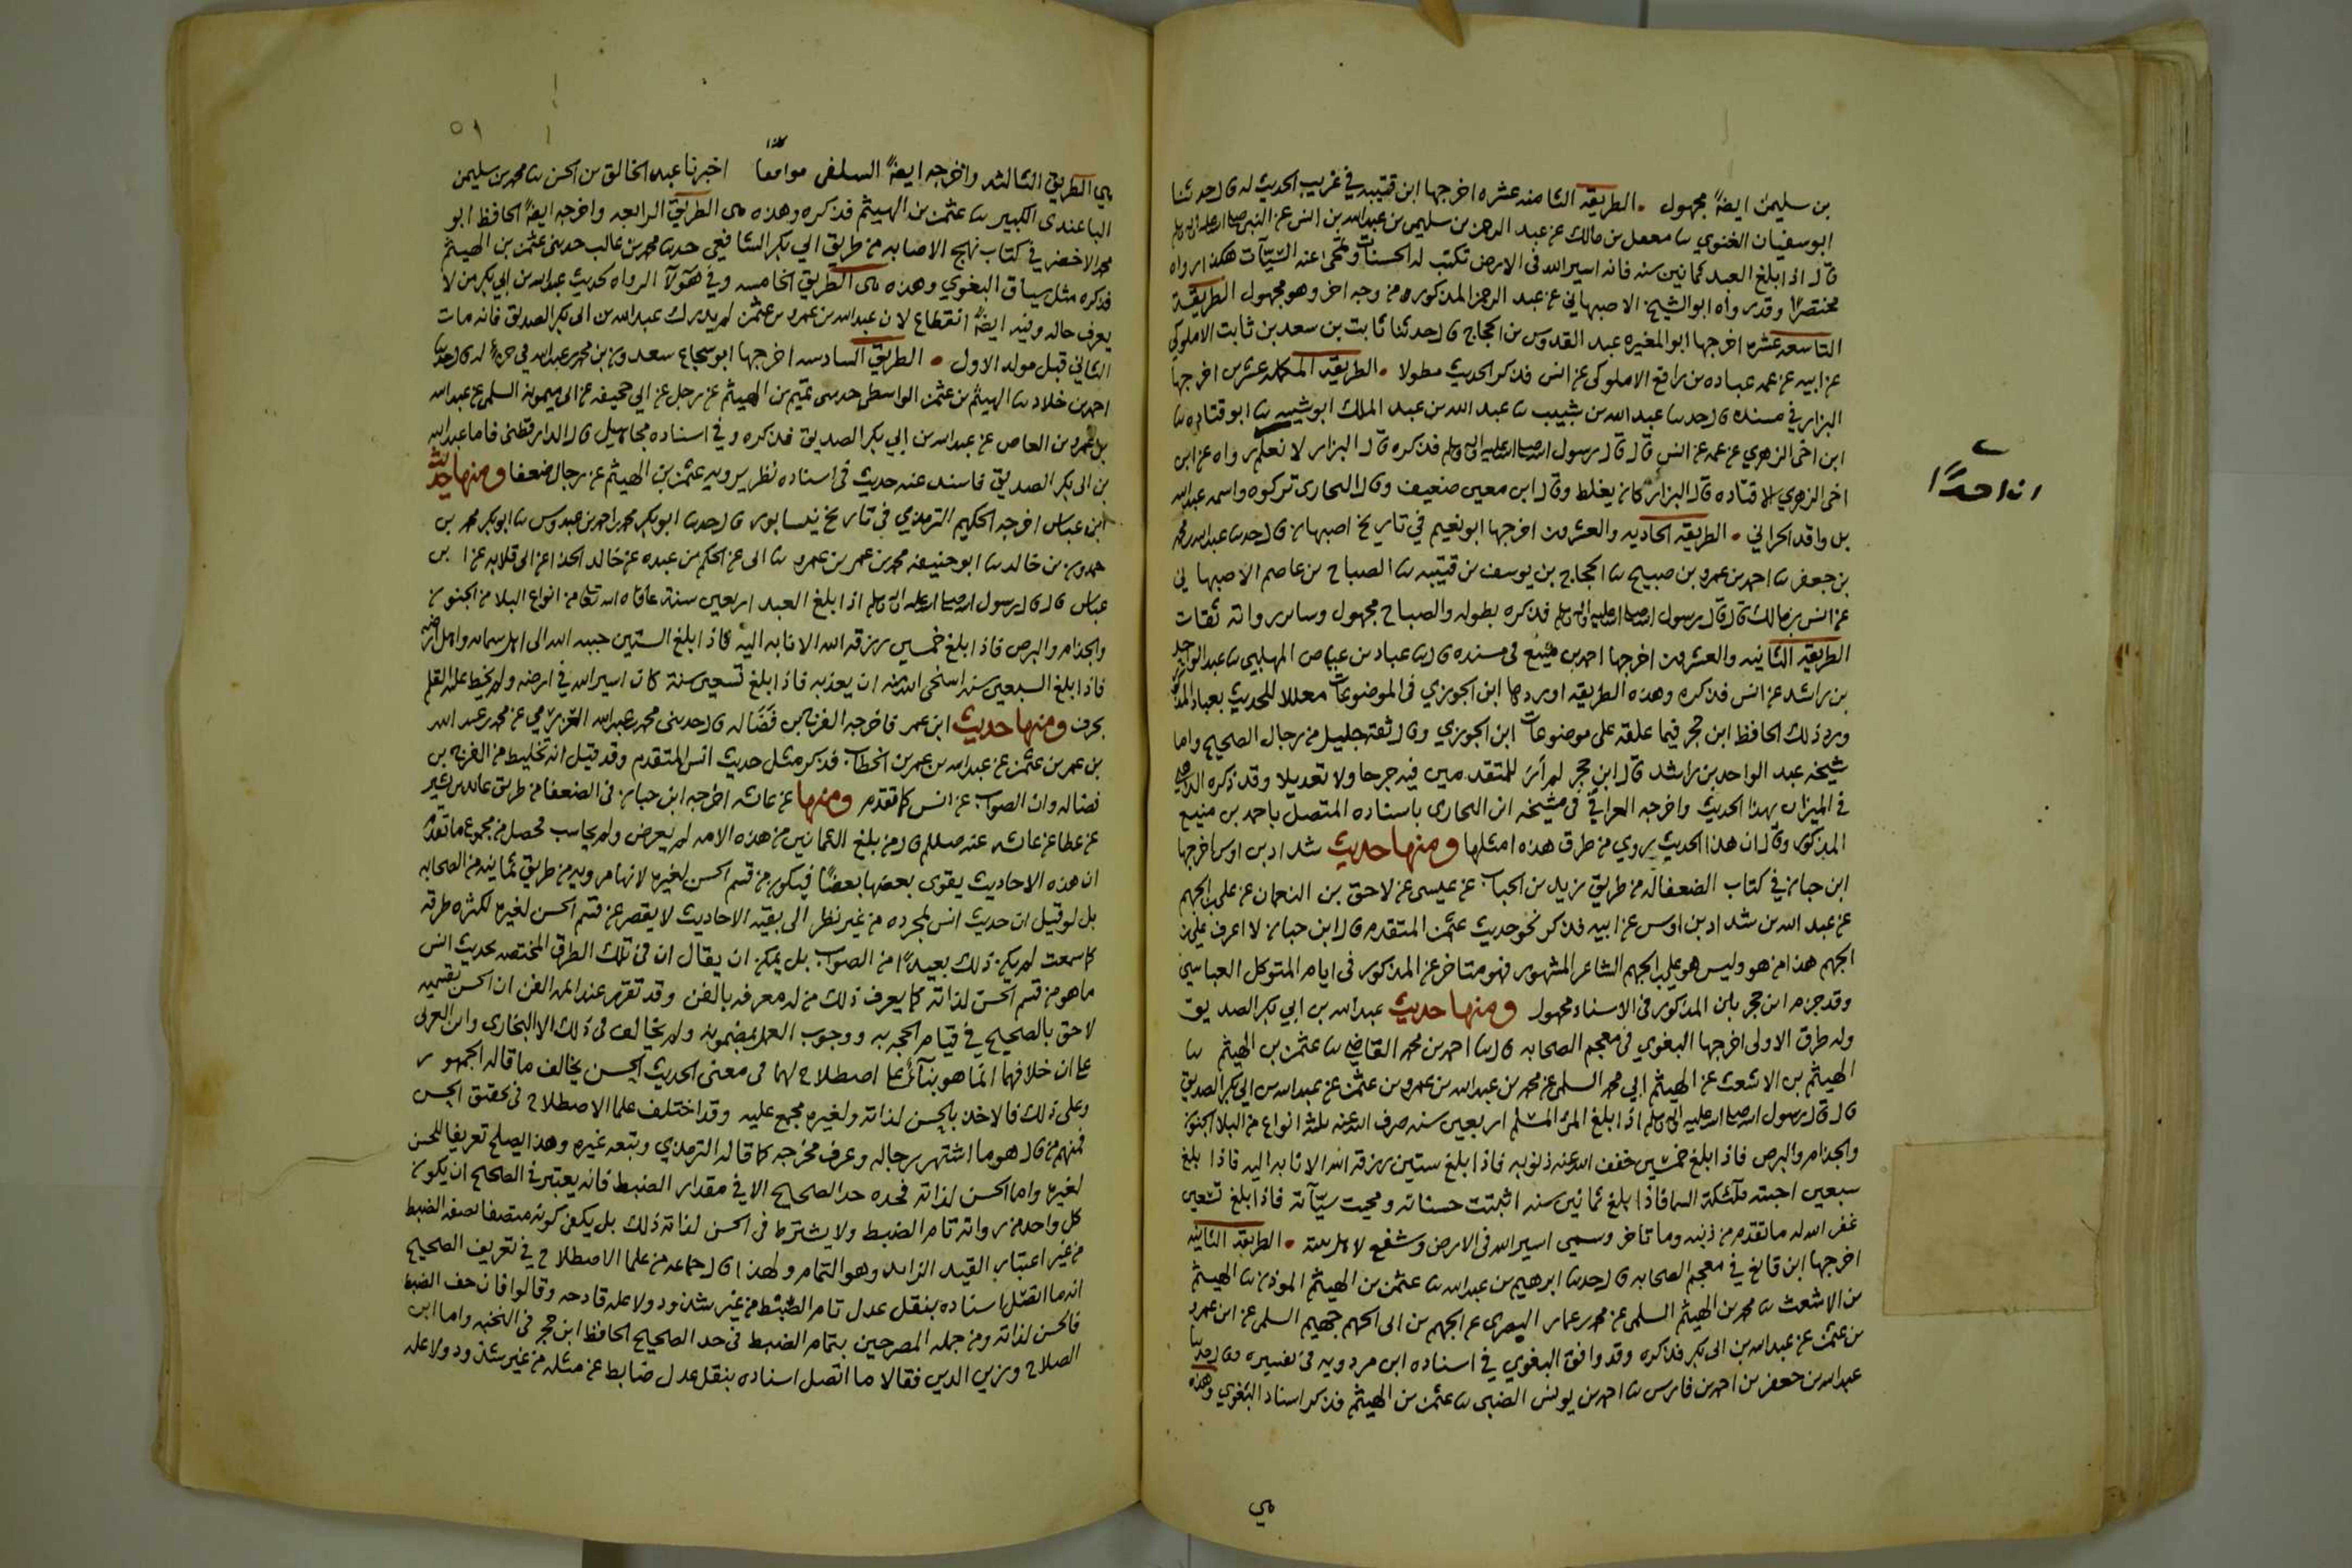 بن سليمن ايضًا مجهول . الطريقه الثامنه عشره اخرجها ابن قتيبه في غريب الحديث له قال حدثنا
ابو سفيان الغنوي ثنا معقل بن مالك عن عبد الرحمن بن سليمن بن عبدالله بن انس عن النبي صلى الله عليه وسلم
قال اذا بلغ العبد ثمانين سنه فانه اسير الله في الارض تكتب له الحسنات وتمحى عنه السيّآت هكذا رواه
مختصرًا وقد رواه ابو الشيخ الاصبهاني عن عبد الرحمن المذكور من وجه اخر وهو مجهول الطريقة
التاسعه عشره اخرجها ابو المغيره عبد القدوس بن الحجاج قال حدثنا ثابت بن سعد بن ثابت الاملوكي
عن ابيه عن عمه عباده بن رافع الاملوكي عن انس فذكر الحديث مطولا . الطريقه المكمله عشرين اخرجها
البزار في مسنده قال حدثنا عبد الله بن شبيب ثنا عبد الله بن عبد الملك ابو شيبه ثنا ابو قتاده ثنا
ابن اخي الزهري عن عمه عن انس قال قال رسول الله صلى الله عليه وسلم فذكره قال البزار لا نعلم رواه عن ابن
اخي الزهري الا قتاده قال البزار كان يغلط وقال ابن معين ضعيف وقال البخاري تركوه واسمه عبدالله
بن واقد الحراني . الطريقه الحاديه والعشرون اخرجها ابو نعيم في تاريخ اصبهان قال حدثنا عبدالله بن محمد
بن جعفر ثنا احمد بن عمرو بن صبيح ثنا الحجاج بن يوسف بن قتيبه ثنا الصباح بن عاصم الاصبهاني
عن انس بن مالك قال قال رسول الله صلى الله عليه وسلم فذكره بطوله والصباح مجهول وساير رواته ثقات
الطريقه الثانيه والعشرون اخرجها احمد بن منيع في مسنده قال ثنا عباد بن عباد المهلبي ثنا عبد الواحد
بن راشد عن انس فذكره وهذه الطريقه اوردها ابن الجوزي في الموضوعات معللا للحديث بعباد المذكور
ورد ذلك الحافظ ابن حجر فيما علقه على موضوعات ابن الجوزي وقال ثقه جليل من رجال الصحيح واما
شيخه عبد الواحد بن راشد قال ابن حجر لم أرَ للمتقدمين فيه جرحا ولا تعديلا وقد ذكره الذهبي
في الميزان بهذا الحديث واخرجه العراقي في مشيخه ابن البخاري باسناده المتصل باحمد بن منيع
المذكور وقال ان هذا الحديث يروي من طرق هذه امثلها ومنها حديث شداد بن اوس اخرجها
ابن حبان في كتاب الضعفا له من طريق زيد بن الحباب عن عيسى عن لاحق بن النعمان عن علي بن الجهم
عن عبد الله بن شداد بن اوس عن ابيه فذكر نحو حديث عثمن المتقدم قال ابن حبان لا اعرف علي بن
الجهم هذا من هو وليس هو علي بن الجهم الشاعر المشهور فهو متاخر عن المذكور في ايام المتوكل العباسي
وقد جزم ابن حجر بان المذكور في الاسناد مجهول ومنها حديث عبد الله بن ابي بكر الصديق
وله طرق الاولى اخرجها البغوي في معجم الصحابه قال ثنا احمد بن محمد القاضي ثنا عثمن بن الهيثم ثنا
الهيثم بن الاشعث عن الهيثم ابي محمد السلمي عن محمد بن عبدالله بن عمرو بن عثمن عن عبدالله بن ابي بكر الصديق
قال قال رسول الله صلى الله عليه وسلم اذا بلغ المرء المسلم اربعين سنه صرف الله عنه ثلثه انواع من البلا الجنون
والجذام والبرص فاذا بلغ خمسين خفف الله عنه ذنوبه فاذا بلغ ستين رزقه الله الانابه اليه فاذا بلغ
سبعين احبته ملئكة السما فاذا بلغ ثمانين سنه اثبتت حسناته ومحيت سيّآته فاذا بلغ تسعين
غفر الله له ما تقدم من ذنبه وما تاخر وسمي اسير الله في الارض وشفع لاهل بيته . الطريقه الثانيه
اخرجها ابن قانع في معجم الصحابه قال حدثنا ابرهيم بن عبدالله ثنا عثمن بن الهيثم الموذن ثنا الهيثم
بن الاشعث ثنا محمد بن الهيثم السلمي عن محمد بن عمار البصري عن الجهم بن ابي الجهم جهيم السلمي عن ابن عمرو
بن عثمن عن عبدالله بن ابي بكر فذكره وقد وافق البغوي في اسناده ابن مردويه في تفسيره قال حدثنا
عبدالله بن جعفر بن احمد بن فارس ثنا احمد بن يونس الضبي ثنا عثمن بن الهيثم فذكر اسناد البغوي وهذه
هي
ان احدًا
٥١
كذا
هي الطريق الثالثه واخرجه ايضًا السلفي موافقا اخبرنا عبد الخالق بن الحسن ثنا محمد بن سليمن
الباغندي الكبير ثنا عثمن بن الهيثم فذكره وهذه هي الطريق الرابعه واخرجه ايضًا الحافظ ابو
محمد الاخضر في كتاب نهج الاصابه من طريق ابي بكر الشافعي حدثنا محمد بن غالب حدثني عثمن بن الهيثم
فذكره مثل سياق البغوي وهذه هي الطريق الخامسه وفي هؤلآ الرواه لحديث عبدالله بن ابي بكر من لا
يعرف حاله وفيه ايضًا انقطاع لان عبدالله بن عمرو بن عثمن لم يدرك عبدالله بن ابي بكر الصديق فانه مات
الثاني قبل مولد الاول . الطريق السادسه اخرجها ابو شجاع سعدون بن محمد بن عبدالله في جزء له قال حدثنا
احمد بن خلاد ثنا الهيثم بن عثمن الواسطي حدثني تميم بن الهيثم عن رجل عن ابي جحيفه عن ابي ميمونه السلمي عن عبدالله
بن عمرو بن العاص عن عبدالله بن ابي بكر الصديق فذكره وفي اسناده مجاهيل قال الدارقطني فاما عبدالله
بن ابي بكر الصديق فاسند عنه حديث في اسناده نظر يرويه عثمن بن الهيثم عن رجال ضعفا ومنها حديث
ابن عباس اخرجه الحكيم الترمذي في تاريخ نيسابور قال حدثنا ابو بكر محمد بن احمد بن عبدوس ثنا ابو بكر محمد بن
حمدون بن خالد ثنا ابو حنيفه محمد بن عمر بن عمرو ثنا ابي عن الحكم بن عبده عن خالد الحذا عن ابي قلابه عن ابن
عباس قال قال رسول الله صلى الله عليه وسلم اذا بلغ العبد اربعين سنة عافاه الله تعالى من انواع البلا من الجنون
والجذام والبرص فاذا بلغ خمسين رزقه الله الانابه اليه فاذا بلغ الستين حببه الله الى اهل سمائه واهل ارضه
فاذا بلغ السبعين سنه استحيى الله منه ان يعذبه فاذا بلغ تسعين سنة كان اسير الله في ارضه ولم يخط عليه القلم
بحرف ومنها حديث ابن عمر فاخرجه الفرج بن فَضَاله قال حدثني محمد بن عبدالله العزرمي عن محمد بن عبد الله
بن عمر بن عثمن عن عبدالله بن عمر بن الخطاب فذكر مثل حديث انس المتقدم وقد قيل انه تخليط من الفرج بن
فضاله وان الصواب عن انس كما تقدم ومنها عن عائشه اخرجه ابن حبان في الضعفا من طريق عائذ بن نسير
عن عطا عن عائشه عنه صللم قال من بلغ الثمانين من هذه الامه لم يعرض ولم يحاسب فحصل من مجموع ما تقدم
ان هذه الاحاديث يقوى بعضها بعضًا فيكون من قسم الحسن لغيره لانها مرويه من طريق ثمانيه من الصحابه
بل لو قيل ان حديث انس لمجرده من غير نظر الى بقيه الاحاديث لا يقصر عن قسم الحسن لغيره لكثره طرقه
كما سمعت لم يكن ذلك بعيدًا من الصواب بل يمكن ان يقال ان في تلك الطرق المختصه بحديث انس
ما هو من قسم الحسن لذاته كما يعرف ذلك من له معرفه بالفن وقد تقرر عند ائمه الفن ان الحسن بقسميه
لاحق بالصحيح في قيام الحجه به ووجوب العمل بمضمونه ولم يخالف في ذلك الا البخاري وابن العربي
على ان خلافهما انما هو بنآءً على اصطلاح لهما في معنى الحديث الحسن يخالف ما قاله الجمهور
وعلى ذلك فالاخذ بالحسن لذاته ولغيره مجمع عليه وقد اختلف علما الاصطلاح في تحقيق الحسن
فمنهم من قال هو ما اشتهر رجاله وعرف مخرجه كما قاله الترمذي وتبعه غيره وهذا يصلح تعريفا للحسن
لغيره واما الحسن لذاته فحده حد الصحيح الا في مقدار الضبط فانه يعتبر في الصحيح ان يكون
كل واحد من رواته تام الضبط ولا يشترط في الحسن لذاته ذلك بل يكفي كونه متصفا بصفه الضبط
من غير اعتبار القيد الزايد وهو التمام ولهذا قال جماعه من علما الاصطلاح في تعريف الصحيح
انه ما اتصل اسناده بنقل عدل تام الضبط من غير شذوذ ولا عله قادحه وقالوا فان خف الضبط
فالحسن لذاته ومن جمله المصرحين بتمام الضبط في حد الصحيح الحافظ ابن حجر في النخبه واما ابن
الصلاح وزين الدين فقالا ما اتصل اسناده بنقل عدل ضابط عن مثله من غير شذوذ ولا عله